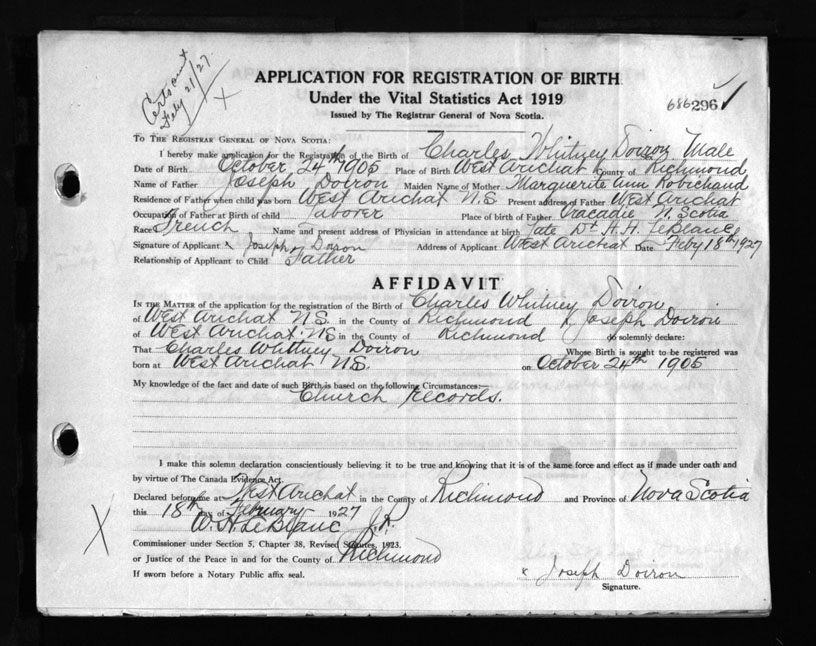 Certs out
Feby 21/27.
X
APPLICATION FOR REGISTRATION OF BIRTH
Under the Vital Statistics Act 1919
Issued by The Registrar General of Nova Scotia.
686296
To The Registrar General of Nova Scotia:
I hereby make application for the Registration of the Birth of Charles Whitney Doiron Male
Date of Birth October 24th 1905 Place of Birth West Arichat County of Richmond
Name of Father Joseph Doiron Maiden Name of Mother Marguerite Ann Robichaud
Residence of Father when child was born West Arichat N.S. Present address of Father West Arichat
Occupation of Father at Birth of child Laborer Place of birth of Father Tracadie N. Scotia
Race French Name and present address of Physician in attendance at birth Late Dr. H. H. LeBlanc
Signature of Applicant x Joseph Doiron Address of Applicant West Arichat Date Feby 18th 1927
Relationship of Applicant to Child Father
AFFIDAVIT
In the Matter of the application for the registration of the Birth of Charles Whitney Doiron
of West Arichat N.S. in the County of Richmond I, Joseph Doiron
of West Arichat N.S in the County of Richmond do solemnly declare:
That Charles Whitney Doiron Whose Birth is sought to be registered was
born at West Arichat N.S. on October 24th 1905
My knowledge of the fact and date of such Birth is based on the following Circumstances:—
Church records.
I make this solemn declaration conscientiously believing it to be true and knowing that it is of the same force and effect as if made under oath and
by virtue of The Canada Evidence Act.
Declared before me at West Arichat in the County of Richmond and Province of Nova Scotia
this 18th day of February 1927
W. H. LeBlanc J.P.
X
Commissioner under Section 5, Chapter 38, Revised Statutes, 1923.
or Justice of the Peace in and for the County of Richmond
If sworn before a Notary Public affix seal.
x Joseph Doiron
Signature.